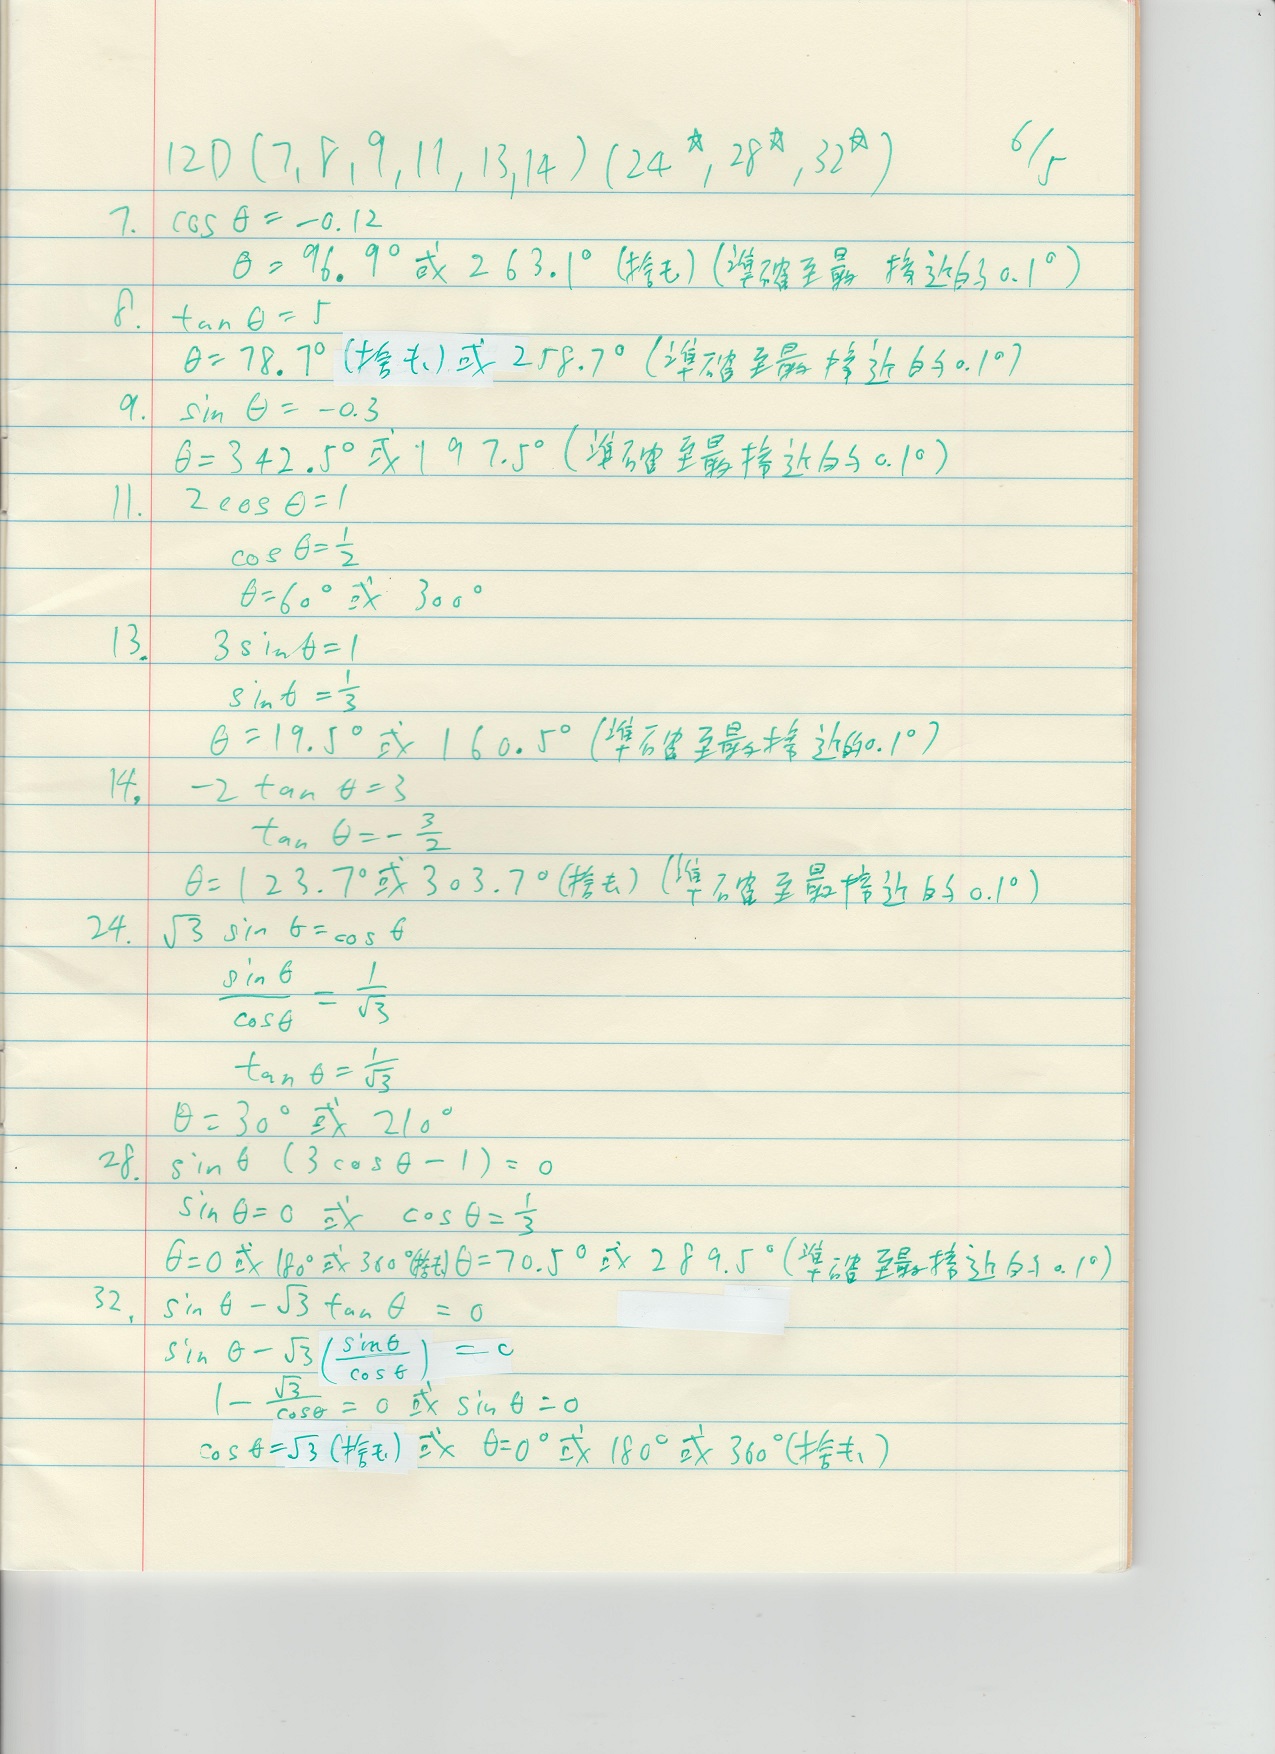 12D (7, 8, 9, 11, 13, 14) (24☆, 28☆, 32☆) 6/5
7. cos θ = -0.12
θ = 96.9° 或 263.1° (捨去) (準確至最接近的 0.1°)
8. tan θ = 5
θ = 78.7° (捨去) 或 258.7° (準確至最接近的 0.1°)
9. sin θ = -0.3
θ = 342.5° 或 197.5° (準確至最接近的 0.1°)
11. 2 cos θ = 1
cos θ = 1/2
θ = 60° 或 300°
13. 3 sin θ = 1
sin θ = 1/3
θ = 19.5° 或 160.5° (準確至最接近的 0.1°)
14. -2 tan θ = 3
tan θ = - 3/2
θ = 123.7° 或 303.7° (捨去) (準確至最接近的 0.1°)
24. √3 sin θ = cos θ
sin θ / cos θ = 1/√3
tan θ = 1/√3
θ = 30° 或 210°
28. sin θ (3 cos θ - 1) = 0
sin θ = 0 或 cos θ = 1/3
θ = 0 或 180° 或 360° (捨去) θ = 70.5° 或 289.5° (準確至最接近的 0.1°)
32. sin θ - √3 tan θ = 0
sin θ - √3 (sin θ / cos θ) = 0
1 - √3 / cos θ = 0 或 sin θ = 0
cos θ = √3 (捨去) 或 θ = 0° 或 180° 或 360° (捨去)